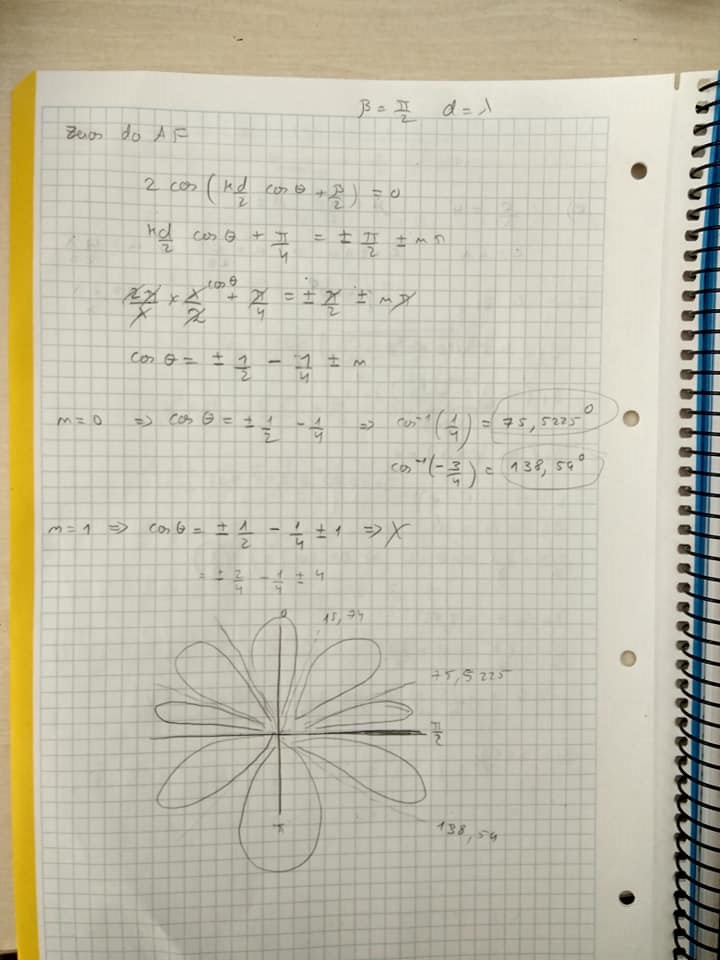 β = π/2 d = λ
Zeros do AF
2 cos(kd/2 cos θ + β/2) = 0
kd/2 cos θ + π/4 = ± π/2 ± mπ
2π/λ × λ/2 cos θ + π/4 = ± π/2 ± mπ
cos θ = ± 1/2 - 1/4 ± m
m = 0 => cos θ = ± 1/2 - 1/4 => cos⁻¹(1/4) = 75,5225°
cos⁻¹(-3/4) = 138,59°
m = 1 => cos θ = ± 1/2 - 1/4 ± 1 => X
= ± 2/4 - 1/4 ± 4
0 15,74
75,5225
π/2
π 138,59